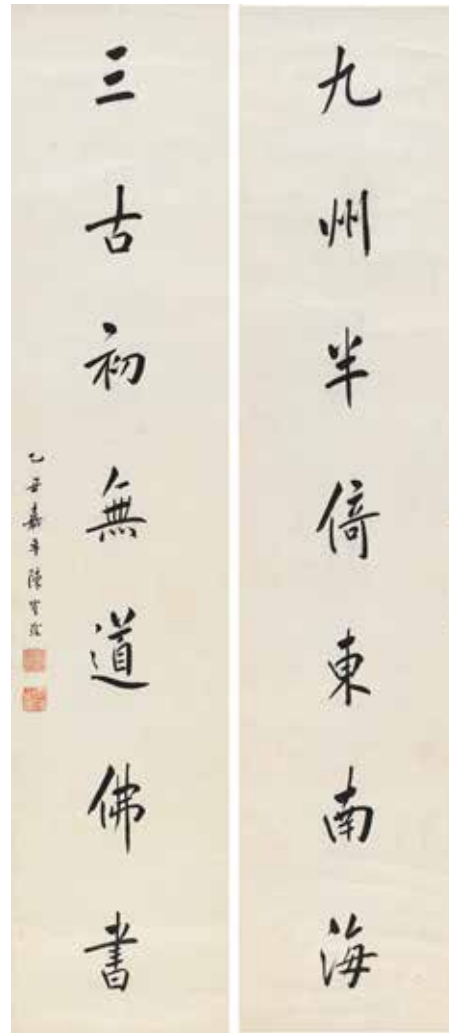 九州半倚東南海
三古初無道佛書
乙丑嘉平陳寶琛